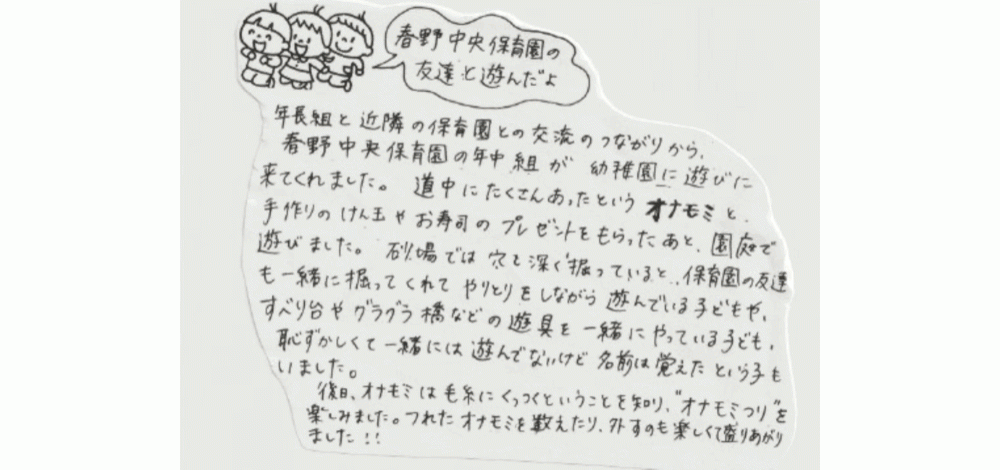 春野中央保育園の
友達と遊んだよ
年長組と近隣の保育園との交流のつながりから、
春野中央保育園の年中組が 幼稚園に遊びに
来てくれました。 道中にたくさんあったという オナモミと、
手作りのけん玉やお寿司のプレゼントをもらったあと、園庭で
遊びました。 砂場では穴を深く掘っていると、保育園の友達
も一緒に掘ってくれて やりとりをしながら 遊んでいる子どもや、
すべり台やグラグラ橋などの遊具を一緒にやっている子ども、
恥ずかしくて一緒には遊んでないけど名前は覚えたという子も
いました。
後日、オナモミは毛糸にくっつくということを知り、"オナモミつり"を
楽しみました。つれたオナモミを数えたり、外すのも楽しくて盛りあがり
ました！！